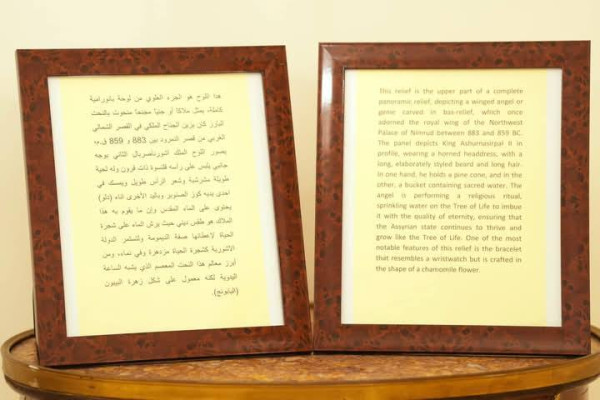 هذا اللوح هو الجزء العلوي من لوحة بانورامية
كاملة، يمثل ملاكا أو جنيا مجنحا منحوت بالنحت
البارز كان يزين الجناح الملكي في القصر الشمالي
الغربي من قصر النمرود بين 883 و 859 ق.م.
يصور اللوح الملك اشورناصربال الثاني بوجه
جانبي يلبس على رأسه قلنسوة ذات قرون وله لحية
طويلة مشرشبة وشعر الرأس طويل ويمسك في
احدى يديه كوز الصنوبر وباليد الأخرى اناء (دلو)
يحتوي على الماء المقدس وإن ما يقوم به هذا
الملاك هو طقس ديني حيث يرش الماء على شجرة
الحياة لاعطائها صفة الديمومة ولتستمر الدولة
الاشورية كشجرة الحياة مزدهرة وفي نماء، ومن
أبرز معالم هذا النحت المعصم الذي يشبه الساعة
اليدوية لكنه معمول على شكل زهرة البيبون
(البابونج).
This relief is the upper part of a complete
panoramic relief, depicting a winged angel or
genie carved in bas-relief, which once
adorned the royal wing of the Northwest
Palace of Nimrud between 883 and 859 BC.
The panel depicts King Ashurnasirpal II in
profile, wearing a horned headdress, with a
long, elaborately styled beard and long hair.
In one hand, he holds a pine cone, and in the
other, a bucket containing sacred water. The
angel is performing a religious ritual,
sprinkling water on the Tree of Life to imbue
it with the quality of eternity, ensuring that
the Assyrian state continues to thrive and
grow like the Tree of Life. One of the most
notable features of this relief is the bracelet
that resembles a wristwatch but is crafted in
the shape of a chamomile flower.